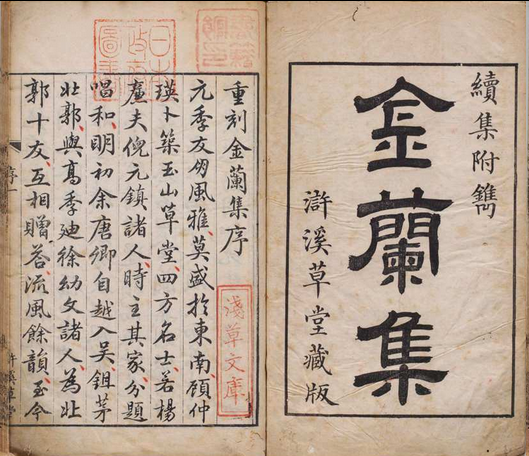 續集附鐫
金蘭集
滸溪草堂藏版
重刻金蘭集序
元季友朋風雅莫盛於東南顧仲
瑛卜築玉山草堂四方名士若楊
廉夫倪元鎮諸人時主其家分題
唱和明初余唐卿自越入吳鉏茅
北郭與高季迪徐幼文諸人為北
郭十友互相贈荅流風餘韻至今
序一
淺草文庫
日本政府圖書